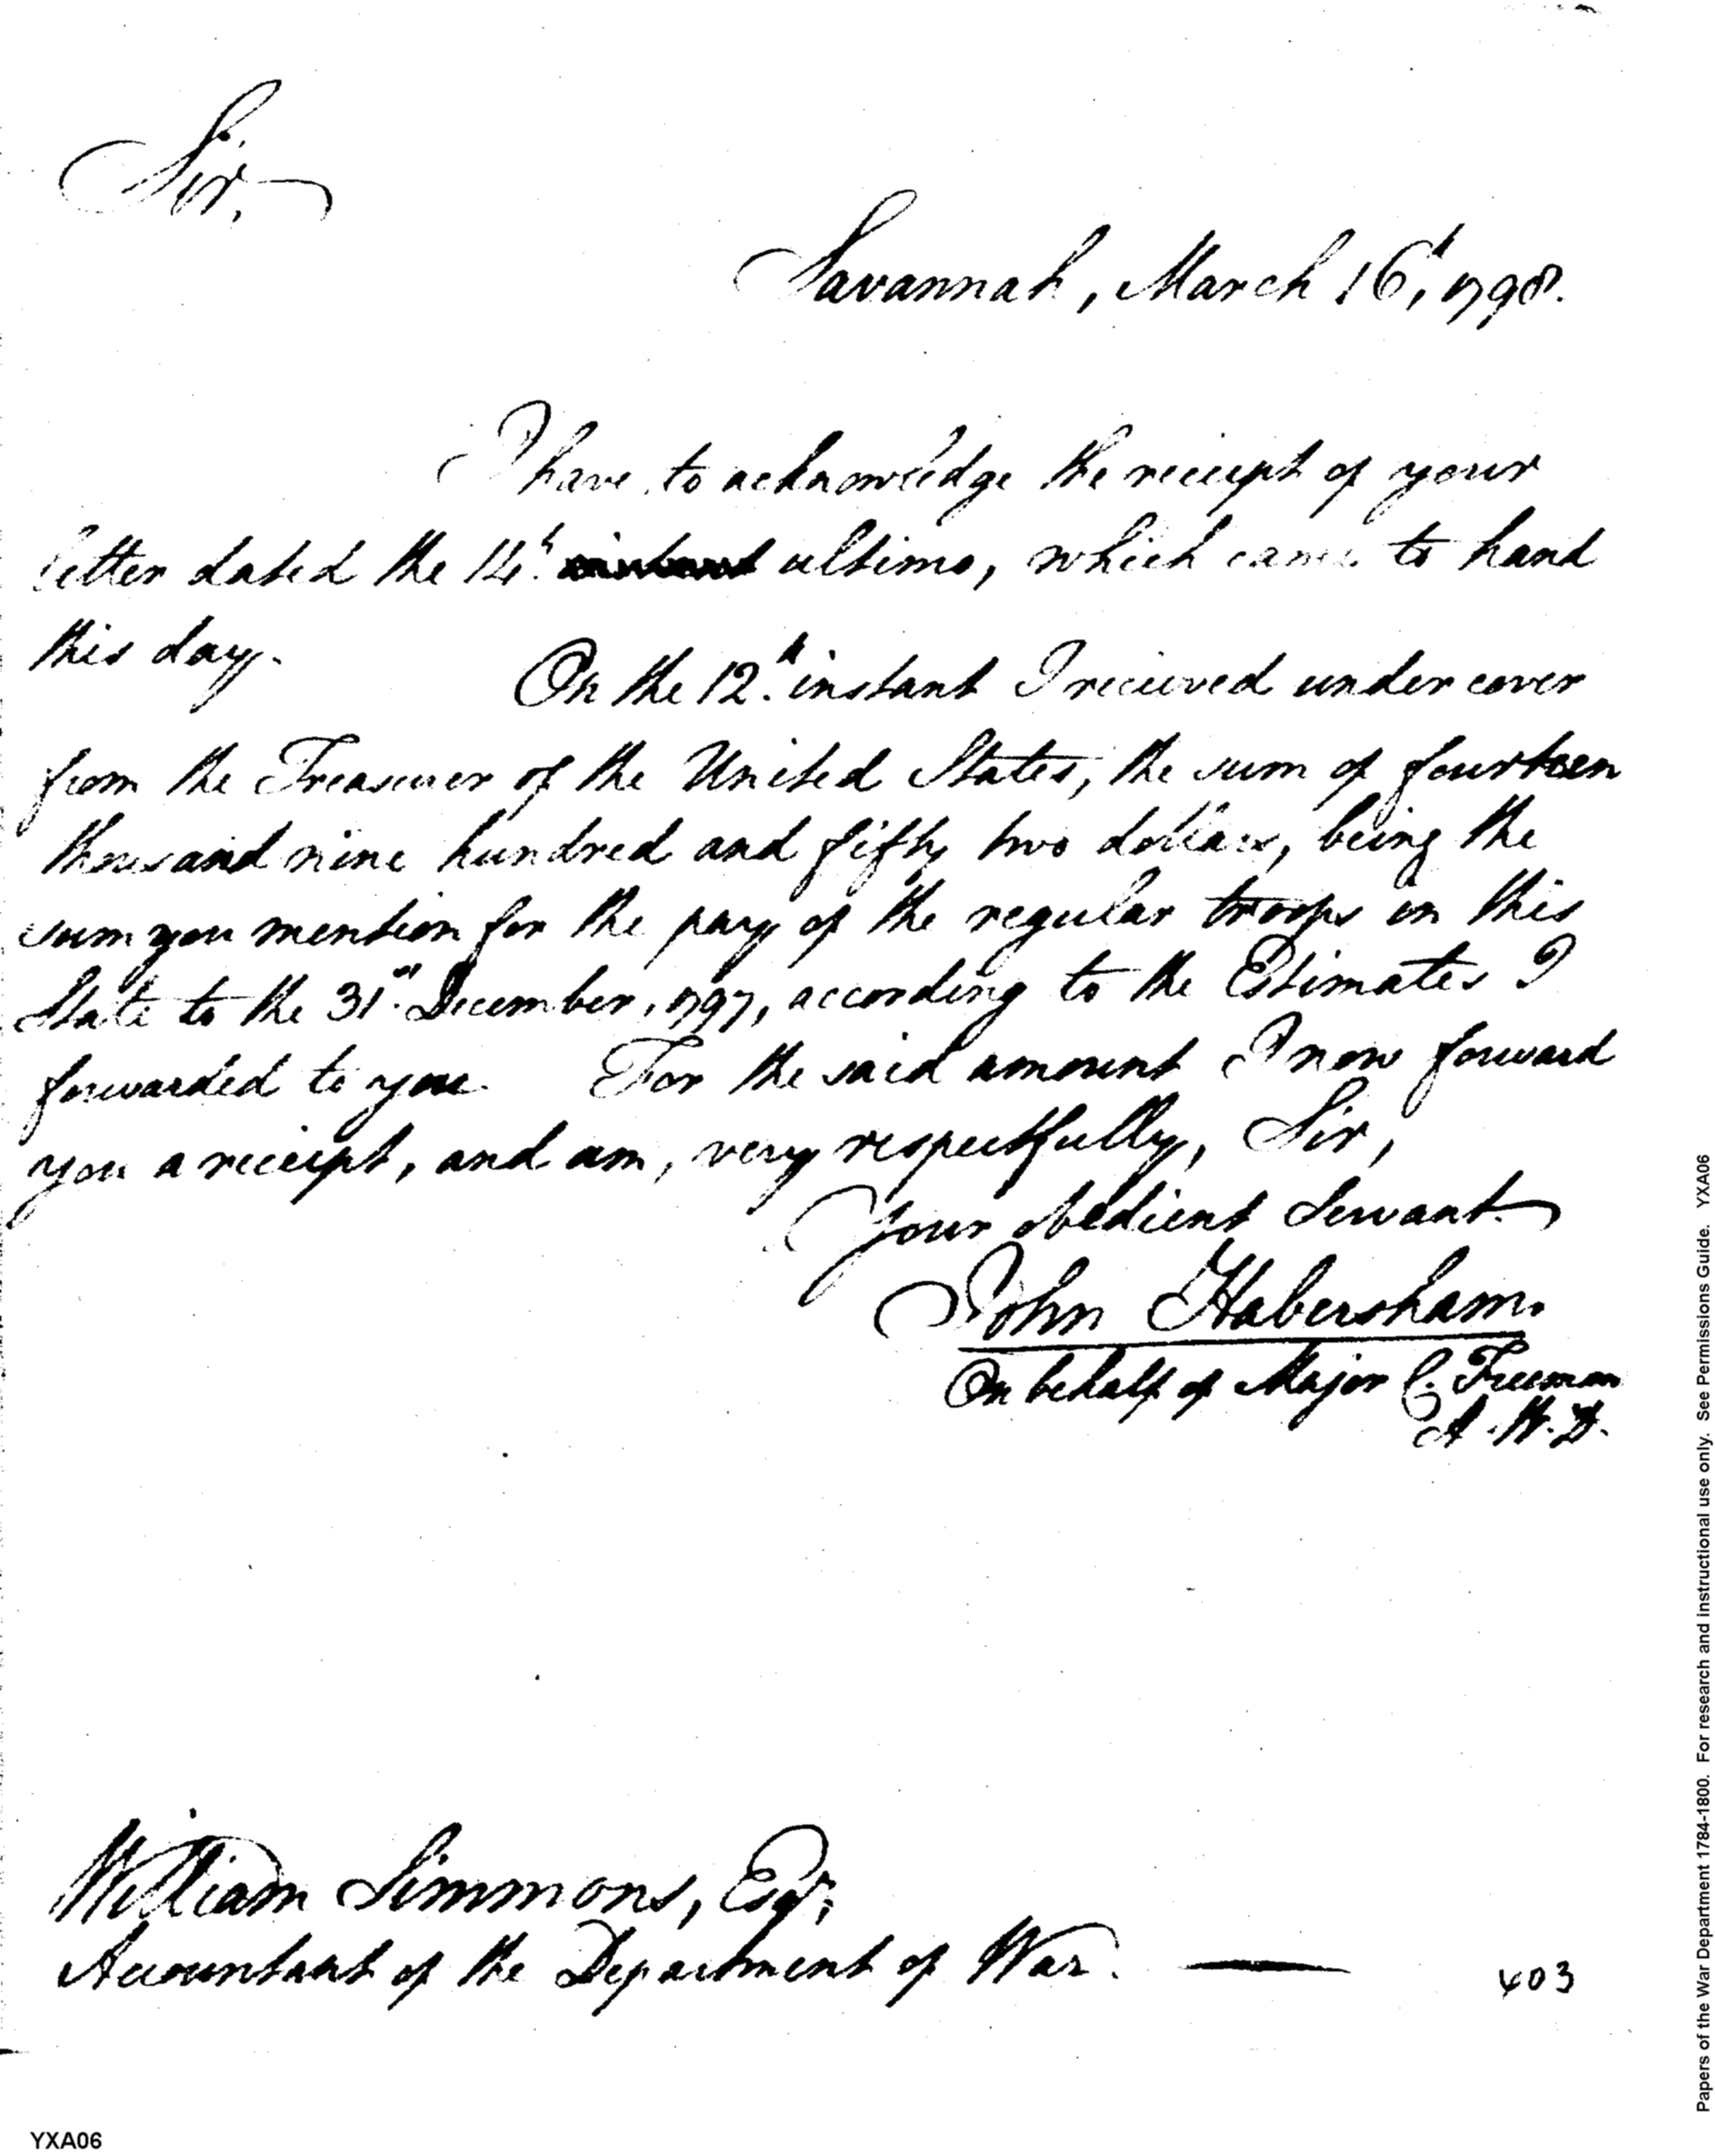 Sir,
Savannah, March 16th, 1798.
I have to acknowledge the receipt of your
letter dated the 14th. ultimo, which came to hand
this day.
On the 12th. instant I received under cover
from the Treasurer of the United States, the sum of fourteen
thousand nine hundred and fifty two dollars, being the
sum you mention for the pay of the regular troops in this
State to the 31st. December, 1797, according to the Estimates I
forwarded to you. For the said amount I now forward
you a receipt, and am, very respectfully, Sir,
Your obedient Servant.
John Habersham.
On behalf of Major C. Freeman
A. W. D.
William Simmons, Esqr,
Accountant of the Department of War.
403
YXA06
Papers of the War Department 1784-1800. For research and instructional use only. See Permissions Guide. YXA06